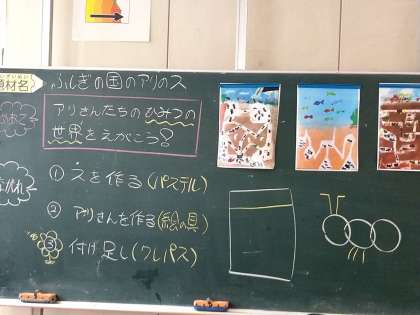 題材名
ふしぎの国のアリのス
めあて
アリさんたちのひみつの
世界をえがこう?
ながれ
① スを作る(パステル)
② アリさんを作る(絵の具)
③ 付け足し(クレパス)